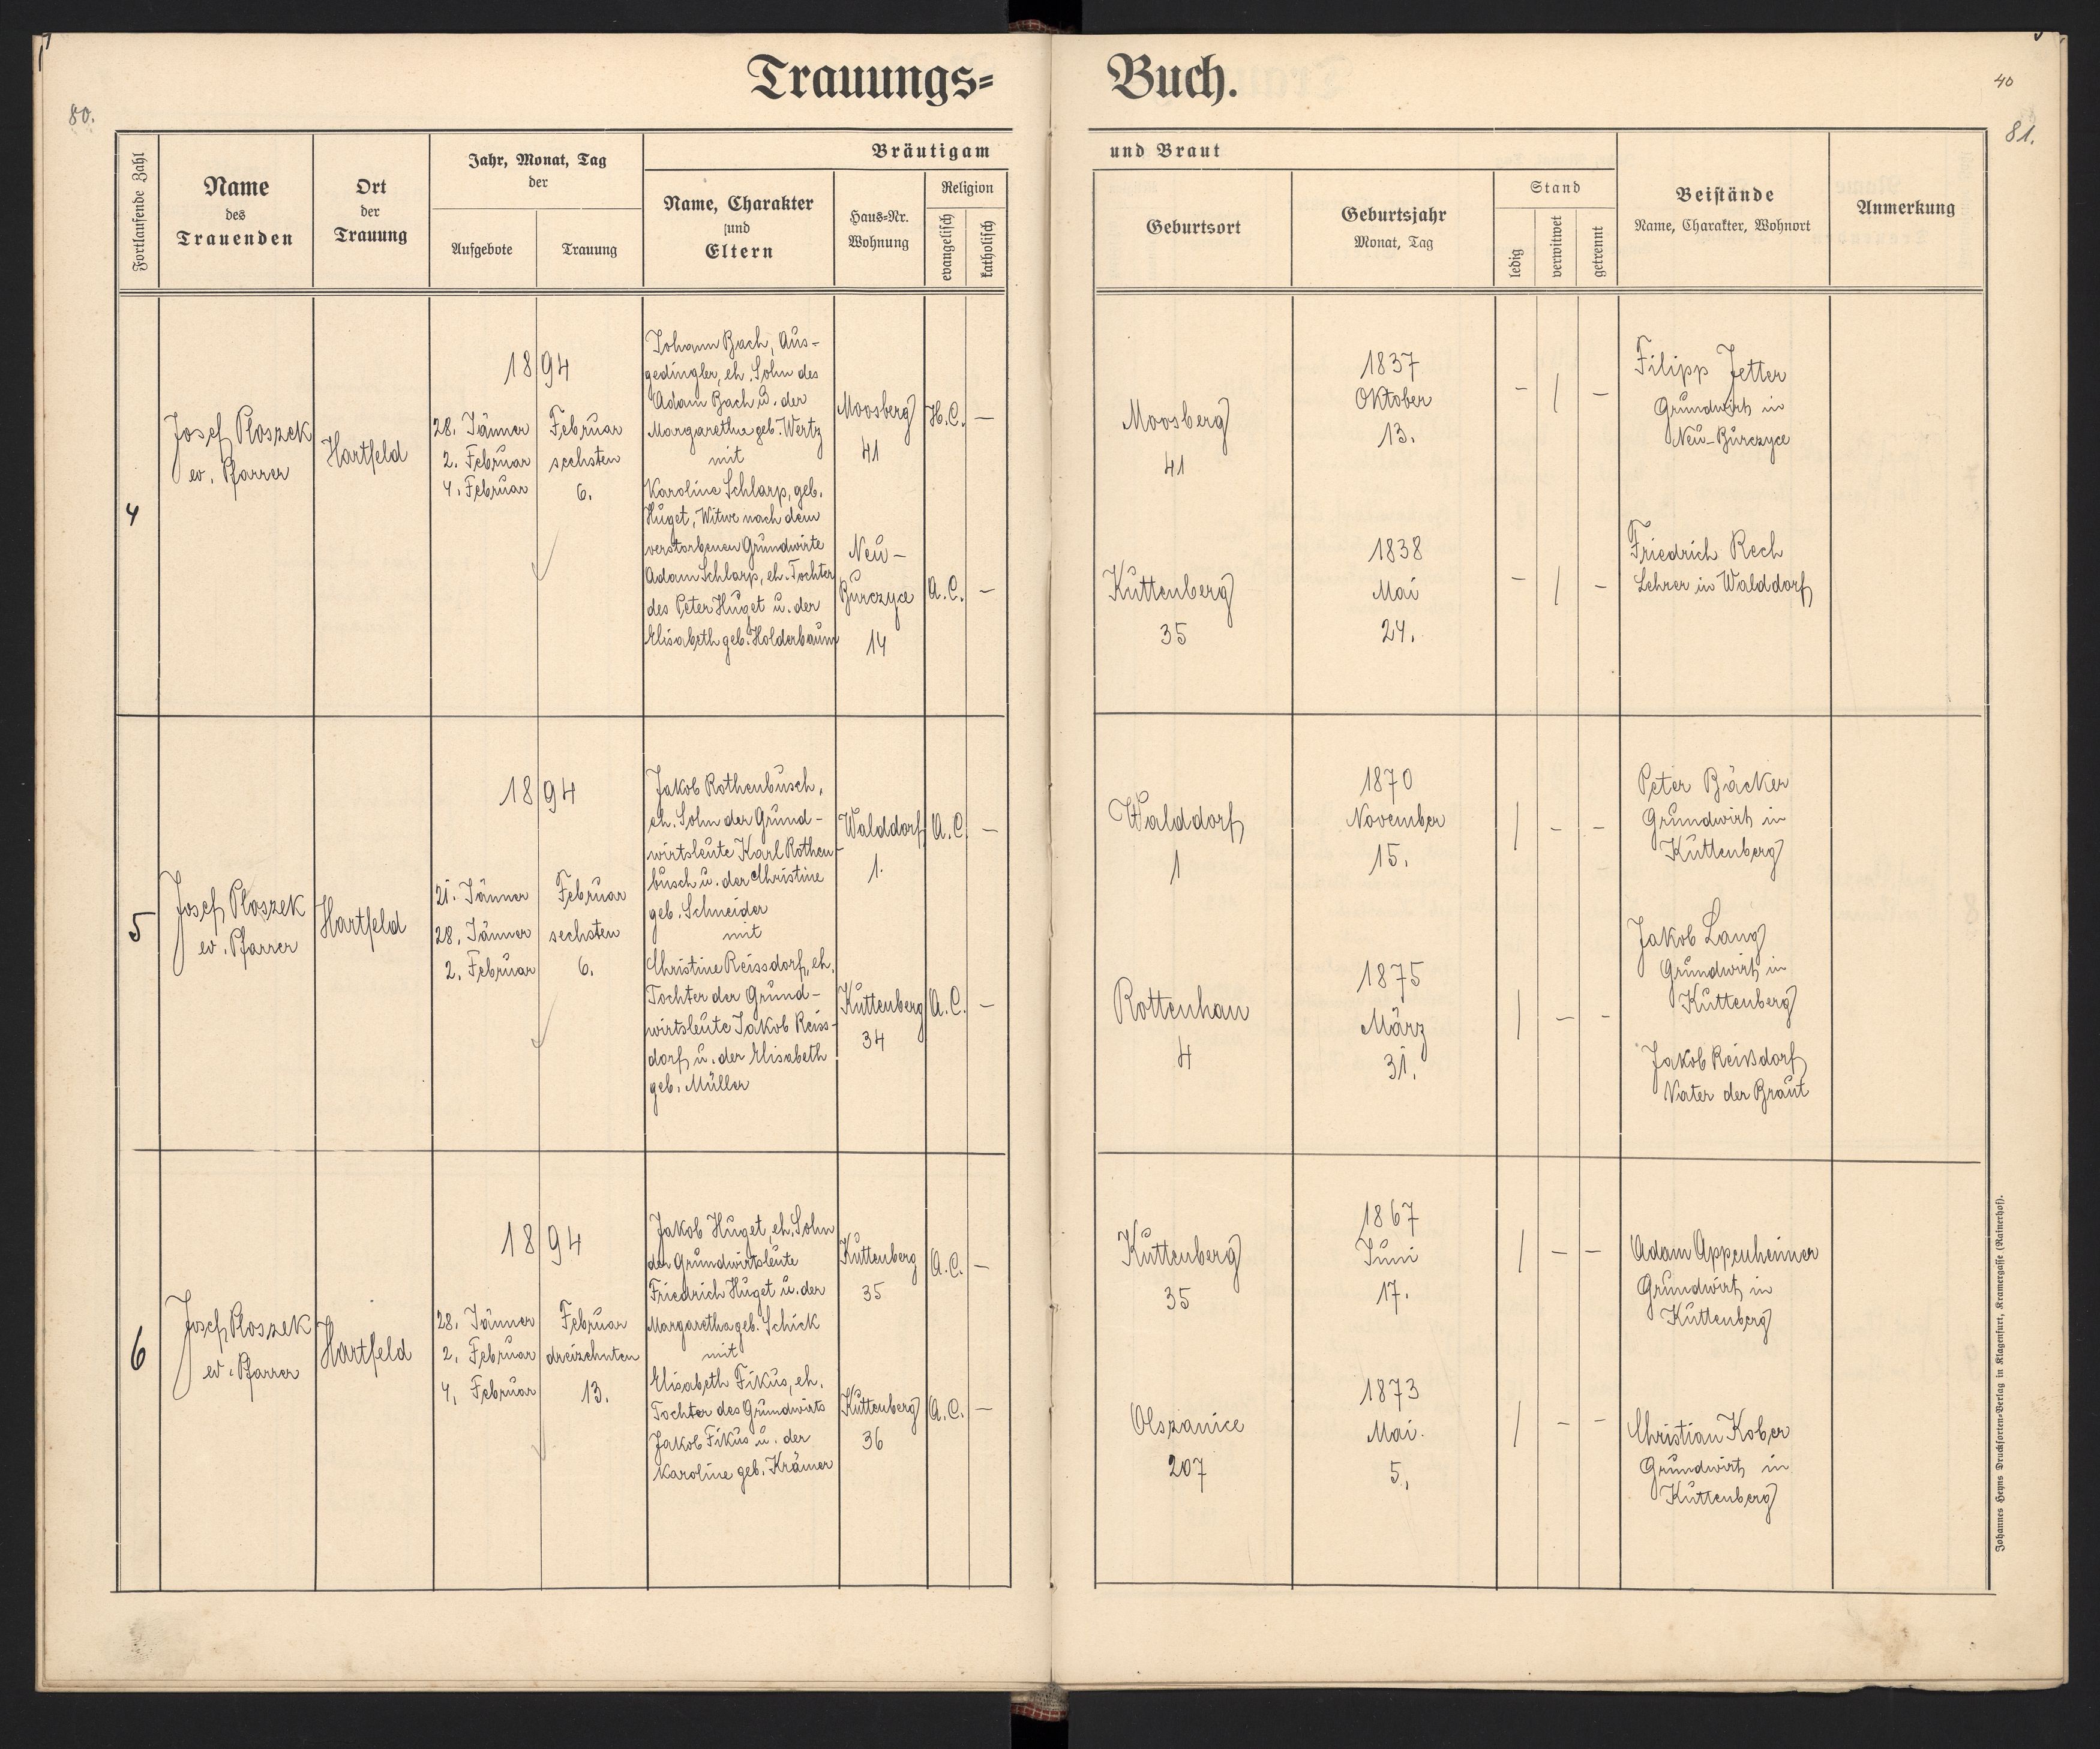 Trauungs=
Buch.
80.
40
81.
Fortlaufende Zahl
Name
des
Trauenden
Ort
der
Trauung
Jahr, Monat, Tag
der
Aufgebote
Trauung
Bräutigam
Name, Charakter
und
Eltern
Haus=Nr.
Wohnung
Religion
evangelisch
katholisch
und Braut
Geburtsort
Geburtsjahr
Monat, Tag
Stand
ledig
verwitwet
getrennt
Beistände
Name, Charakter, Wohnort
Anmerkung
4
Josef Ploszek
ev. Pfarrer
Hartfeld
1894
28. Jänner
2. Februar
4. Februar
Februar
sechsten
6.
Johann Bach, Aus-
gedingler, eh. Sohn des
Adam Bach u. der
Margaretha geb. Wertz
mit
Karoline Schlarp, geb.
Huget, Witwe nach dem
verstorbenen Grundwirte
Adam Schlarp, eh. Tochter
des Peter Huget u. der
Elisabeth geb. Holderbaum
Moosberg
41
Neu-
Burczyce
14
H.C. —
A.C. —
Moosberg
41
Kuttenberg
35
1837
Oktober
13.
1838
Mai
24.
- / -
- / -
Filipp Jetter
Grundwirt in
Neu-Burczyce
Friedrich Rech
Lehrer in Walddorf
5
Josef Ploszek
ev. Pfarrer
Hartfeld
1894
21. Jänner
28. Jänner
2. Februar
Februar
sechsten
6.
Jakob Rothenbusch,
eh. Sohn der Grund-
wirtsleute Karl Rothen-
busch u. der Christine
geb. Schneider
mit
Christine Reissdorf, eh.
Tochter der Grund-
wirtsleute Jakob Reiss-
dorf u. der Elisabeth
geb. Müller
Walddorf
1.
Kuttenberg
34
A.C. —
A.C. —
Walddorf
1
Rottenhan
4
1870
November
15.
1875
März
31.
/ - -
/ - -
Peter Bäcker
Grundwirt in
Kuttenberg
Jakob Lang
Grundwirt in
Kuttenberg
Jakob Reißdorf
Vater der Braut
6
Josef Ploszek
ev. Pfarrer
Hartfeld
1894
28. Jänner
2. Februar
4. Februar
Februar
dreizehnten
13.
Jakob Huget, eh. Sohn
der Grundwirtsleute
Friedrich Huget u. der
Margaretha geb. Schick
mit
Elisabeth Fikus, eh.
Tochter des Grundwirts
Jakob Fikus u. der
Karoline geb. Krämer
Kuttenberg
35
Kuttenberg
36
A.C. —
A.C. —
Kuttenberg
35
Olszanice
207
1867
Juni
17.
1873
Mai.
5.
/ - -
/ - -
Adam Appenheimer
Grundwirt in
Kuttenberg
Christian Kober
Grundwirt in
Kuttenberg
Johannes Heyns Drucksorten=Verlag in Klagenfurt, Kramergasse (Rainerhof).